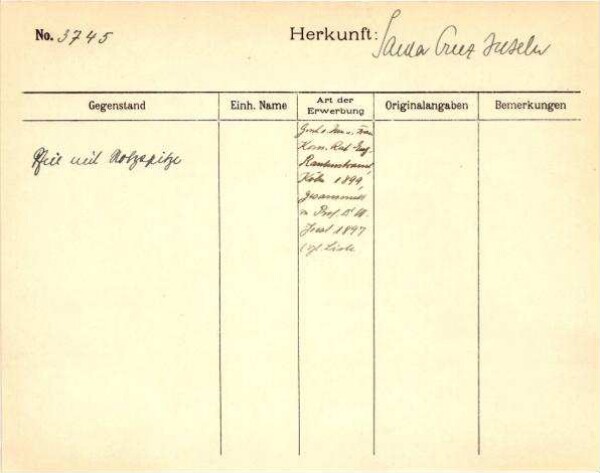 No. 3745
Herkunft: Santa Cruz Inseln
Gegenstand
Einh. Name
Art der
Erwerbung
Originalangaben
Bemerkungen
Pfeil mit Holzspitze
Gesch. v.
Kom. Rat Eug.
Rautenstrauch
Köln 1899,
gesammelt
v. Prof. Dr. W.
Joest 1897
(vgl. Liste